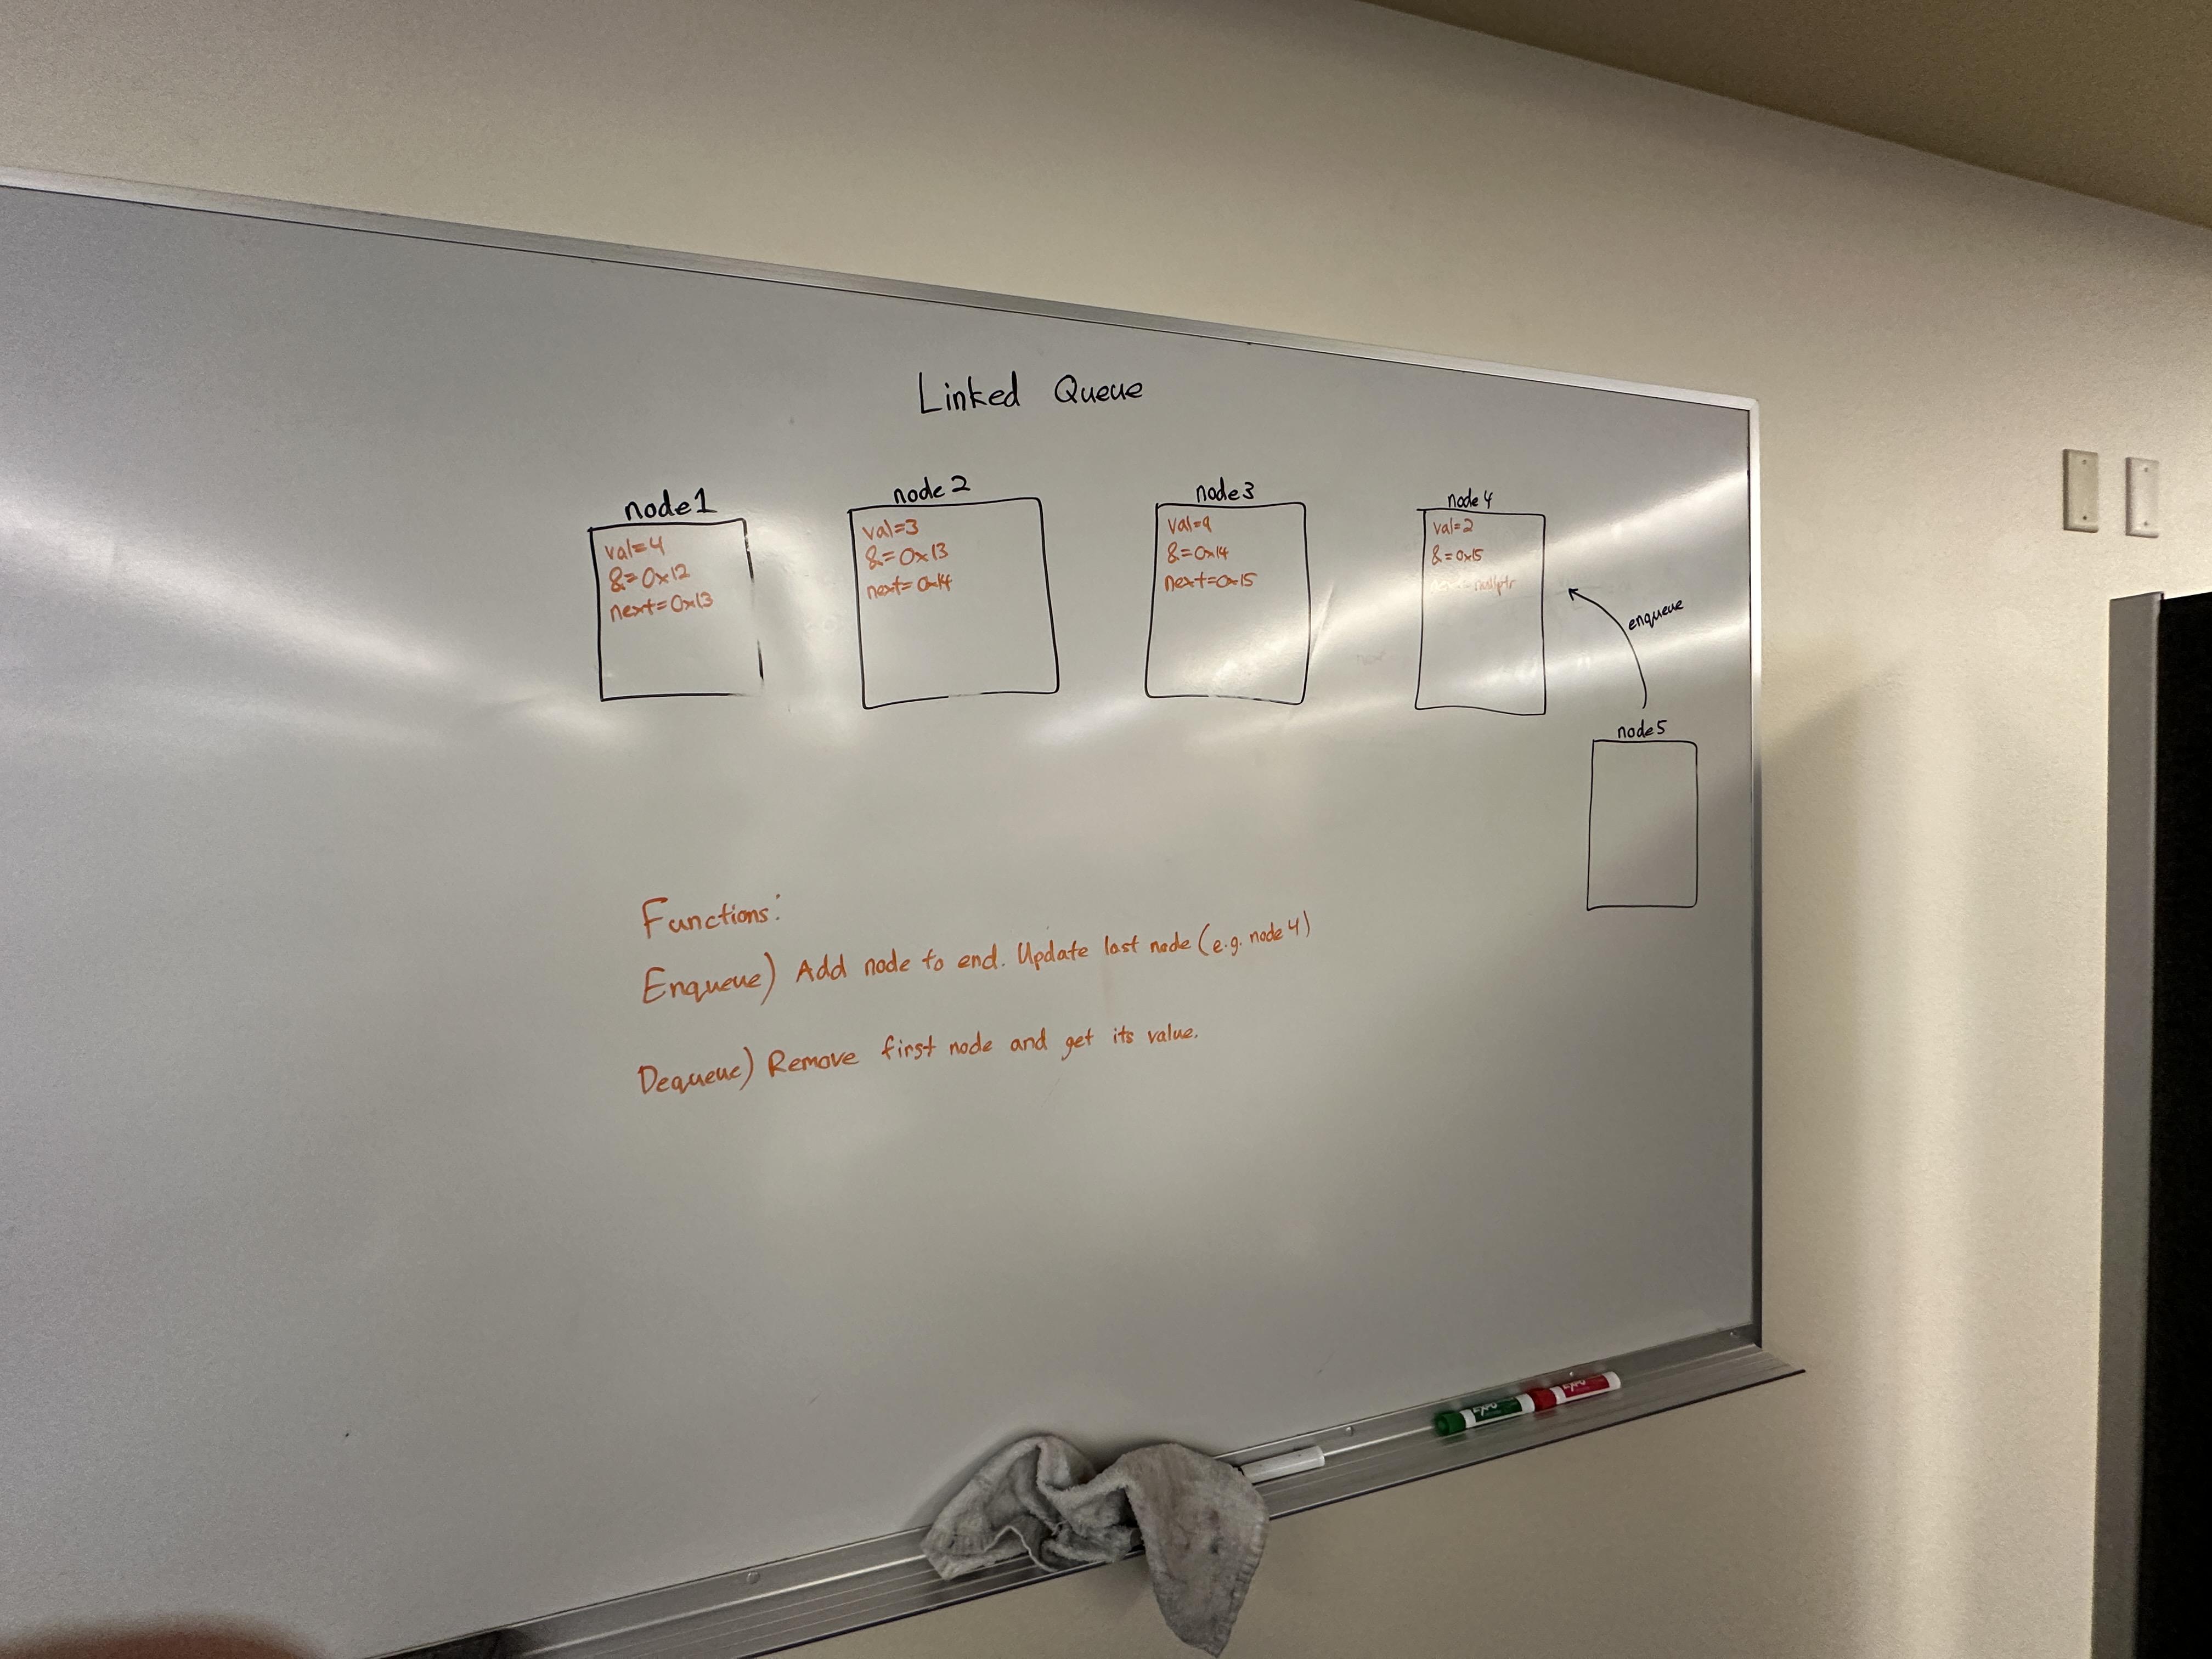 Linked Queue
node1
val=4
&=0x12
next=0x13
node2
val=3
&=0x13
next=0x14
node3
val=9
&=0x14
next=0x15
node4
val=2
&=0x15
nullptr
enqueue
node5
Functions:
Enqueue) Add node to end. Update last node (e.g. node 4)
Dequeue) Remove first node and get its value.
EXPO
EXPO